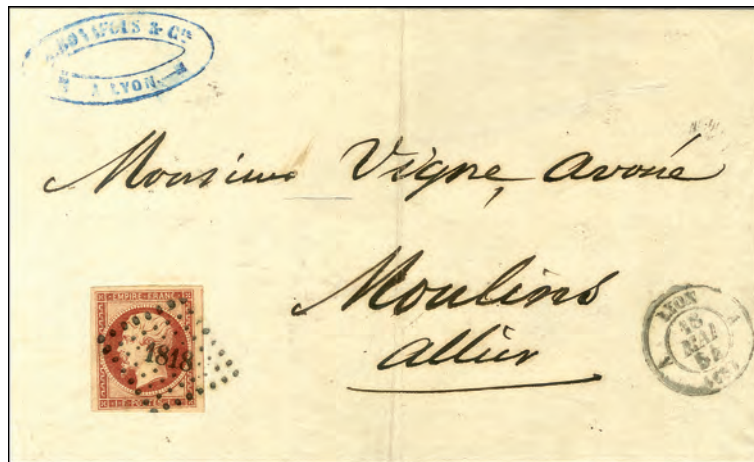 BONAFOUS & Cie
A LYON
Monsieur Vigne, avoué
Moulins
Allier
EMPIRE FRANC
1818
LYON
18
MAI
54